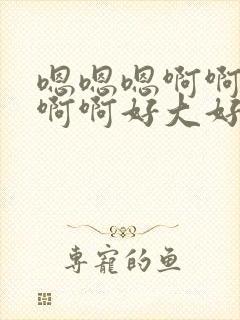 嗯嗯嗯啊啊
啊啊好大好
专宠的鱼